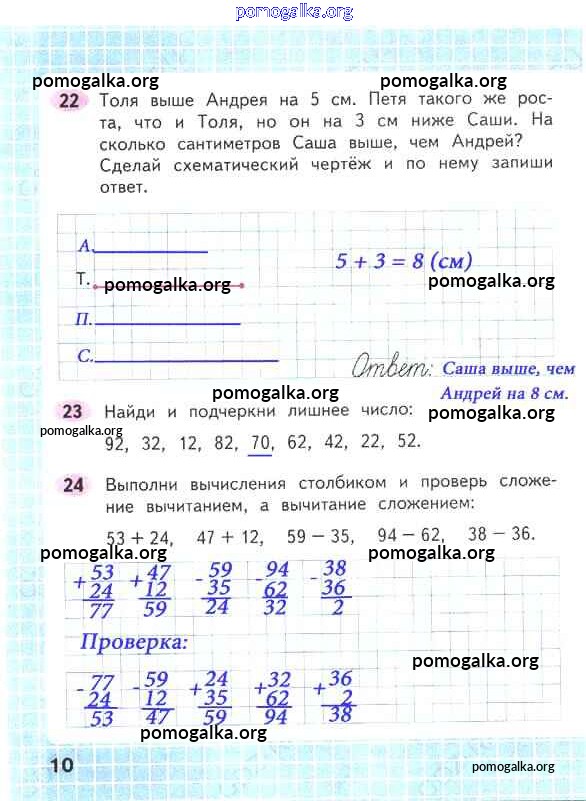 pomogalka.org
pomogalka.org pomogalka.org
22 Толя выше Андрея на 5 см. Петя такого же рос-
та, что и Толя, но он на 3 см ниже Саши. На
сколько сантиметров Саша выше, чем Андрей?
Сделай схематический чертёж и по нему запиши
ответ.
А.
5 + 3 = 8 (см)
Т. pomogalka.org pomogalka.org
П.
С.
Ответ: Саша выше, чем
Андрей на 8 см.
pomogalka.org
23 Найди и подчеркни лишнее число: pomogalka.org
pomogalka.org
92, 32, 12, 82, 70, 62, 42, 22, 52.
24 Выполни вычисления столбиком и проверь сложе-
ние вычитанием, а вычитание сложением:
53 + 24, 47 + 12, 59 − 35, 94 − 62, 38 − 36.
pomogalka.org pomogalka.org
53 47 59 94 38
+ 24 + 12 - 35 - 62 - 36
77 59 24 32 2
Проверка:
pomogalka.org
77 59 24 32 36
- 24 - 12 + 35 + 62 + 2
53 47 59 94 38
pomogalka.org
10 pomogalka.org